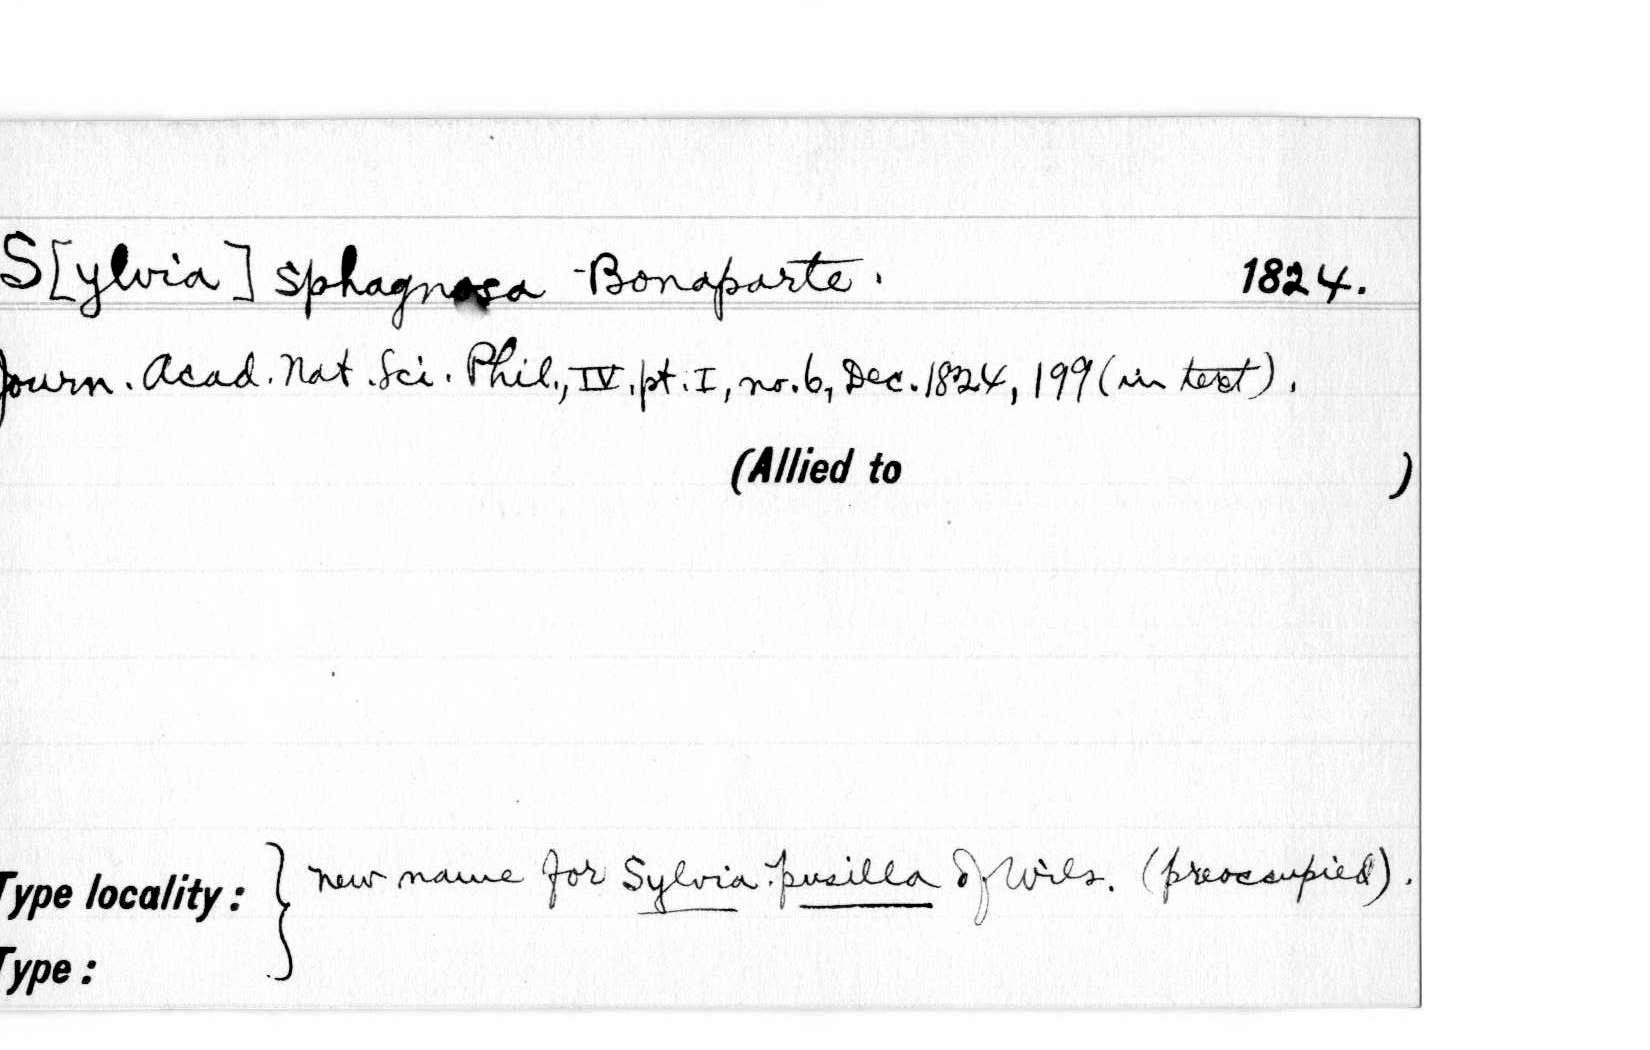 S[ylvia] sphagnosa Bonaparte. 1824.
Journ. Acad. Nat. Sci. Phil., IV, pt. I, no. 6, Dec. 1824, 199 (in text).
(Allied to )
Type locality: } new name for Sylvia pusilla of Wils. (preoccupied).
Type: